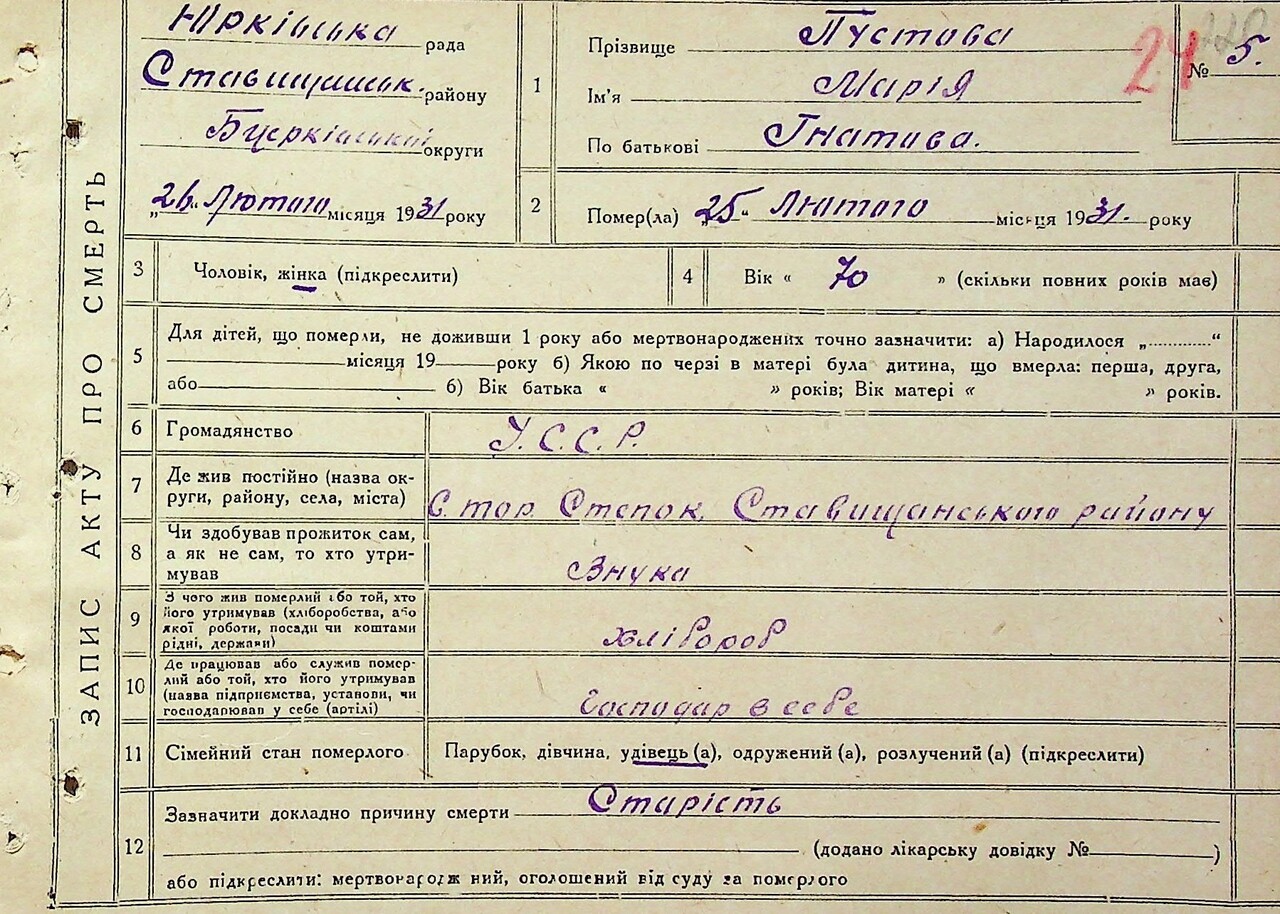 ЗАПИС АКТУ ПРО СМЕРТЬ
Юрківська рада
Ставищанськ. району
округи
„26“ Лютого місяця 1931 року
1
Прізвище Пустова
Ім’я Марія
По батькові Гнатова.
24
№ 5.
2
Помер(ла) „25“ Лютого місяця 1931. року
3
Чоловік, жінка (підкреслити)
4
Вік « 70 » (скільки повних років має)
5
Для дітей, що померли, не доживши 1 року або мертвонароджених точно зазначити: а) Народилося „............“
місяця 19 року б) Якою по черзі в матері була дитина, що вмерла: перша, друга,
або б) Вік батька « » років; Вік матері « » років.
6
Громадянство
У.С.С.Р.
7
Де жив постійно (назва ок-
руги, району, села, міста)
Степок Ставищанського району
8
Чи здобував прожиток сам,
а як не сам, то хто утри-
мував
Знука
9
З чого жив померлий або той, хто
його утримував (хліборобства, або
якої роботи, посади чи коштами
рідні, держави)
хлібороб
10
Де працював або служив помер-
лий або той, хто його утримував
(назва підприємства, установи, чи
господарював у себе (артілі)
Господар в себе
11
Сімейний стан померлого
Парубок, дівчина, удівець (а), одружений (а), розлучений (а) (підкреслити)
12
Зазначити докладно причину смерти Старість
(додано лікарську довідку № )
або підкреслити: мертвонародж ний, оголошений від суду за померлого